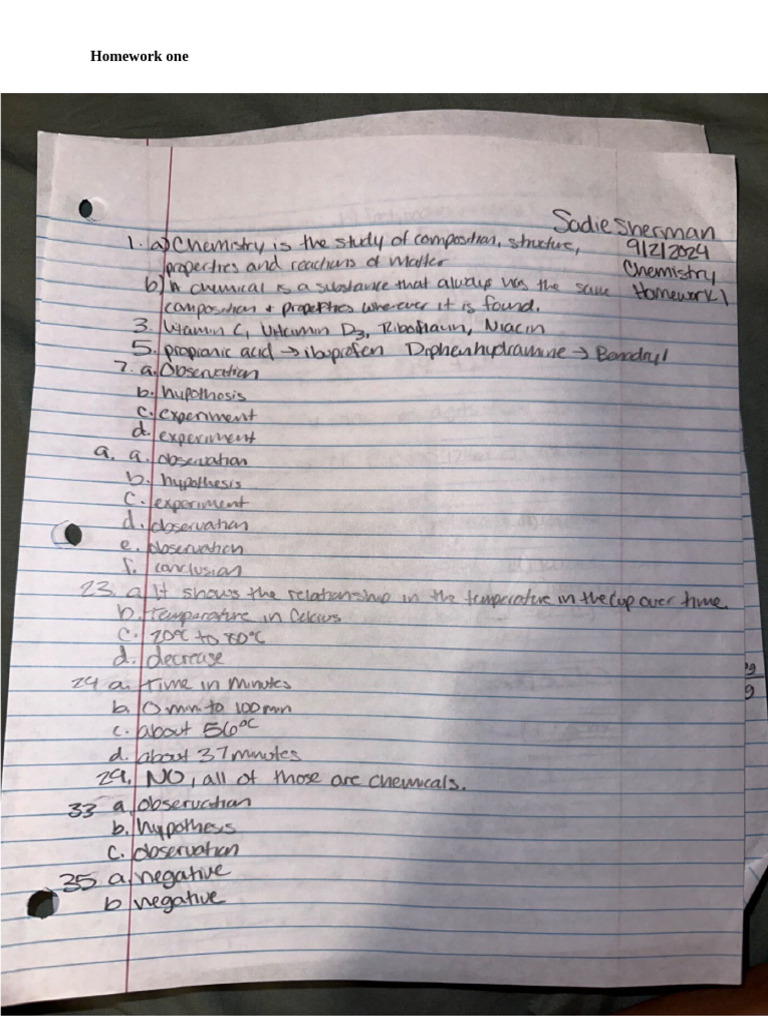 Homework one
Sadie Sherman
1. a) Chemistry is the study of composition, structure, 9/2/2024
properties and reactions of matter Chemistry
b) A chemical is a substance that always has the same Homework 1
composition + properties wherever it is found.
3. Vitamin C, Vitamin D3, Riboflavin, Niacin
5. propionic acid → ibuprofen Diphenhydramine → Benadryl
7. a. Observation
b. hypothosis
c. experiment
d. experiment
9. a. observation
b. hypothesis
c. experiment
d. observation
e. observation
f. conclusion
23. a. It shows the relationship in the temperature in the cup over time.
b. Temperature in Celcius
c. 20°C to 80°C
d. decrease
24 a. Time in Minutes
b. 0 min to 100min
c. about 56°C
d. about 37 minutes
29. NO, all of those are chemicals.
33 a. observation
b. hypothesis
c. observation
35 a. negative
b negative